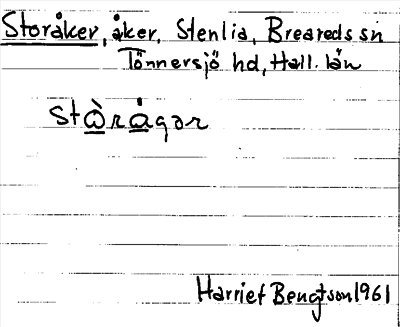 Storåker, åker, Stenlia, Breareds sn
Tönnersjö hd, Hall. län
stὼrågər
Harriet Bengtson 1961